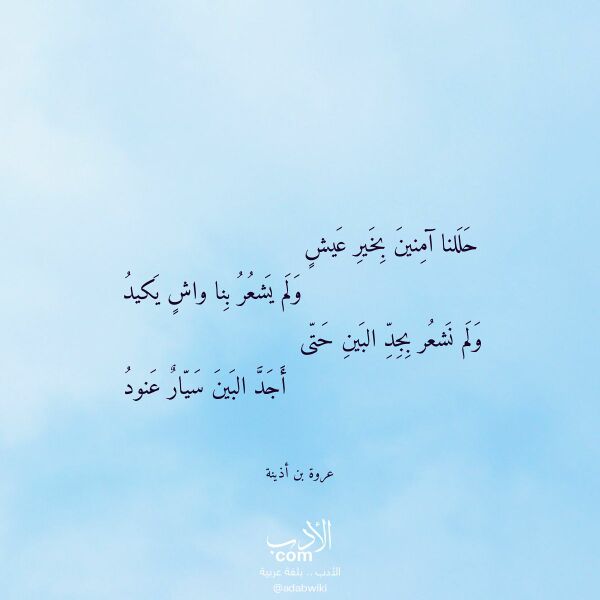 حَلَلنا آمِنينَ بِخَيرِ عَيشٍ
وَلَم يَشعُرُ بِنا واشٍ يَكيدُ
وَلَم نَشعُر بِجِدِّ البَينِ حَتّى
أَجَدَّ البَينَ سَيّارٌ عَنودُ
عروة بن أذينة
الأدب
com
الأدب .. بلغة عربية
@adabwiki